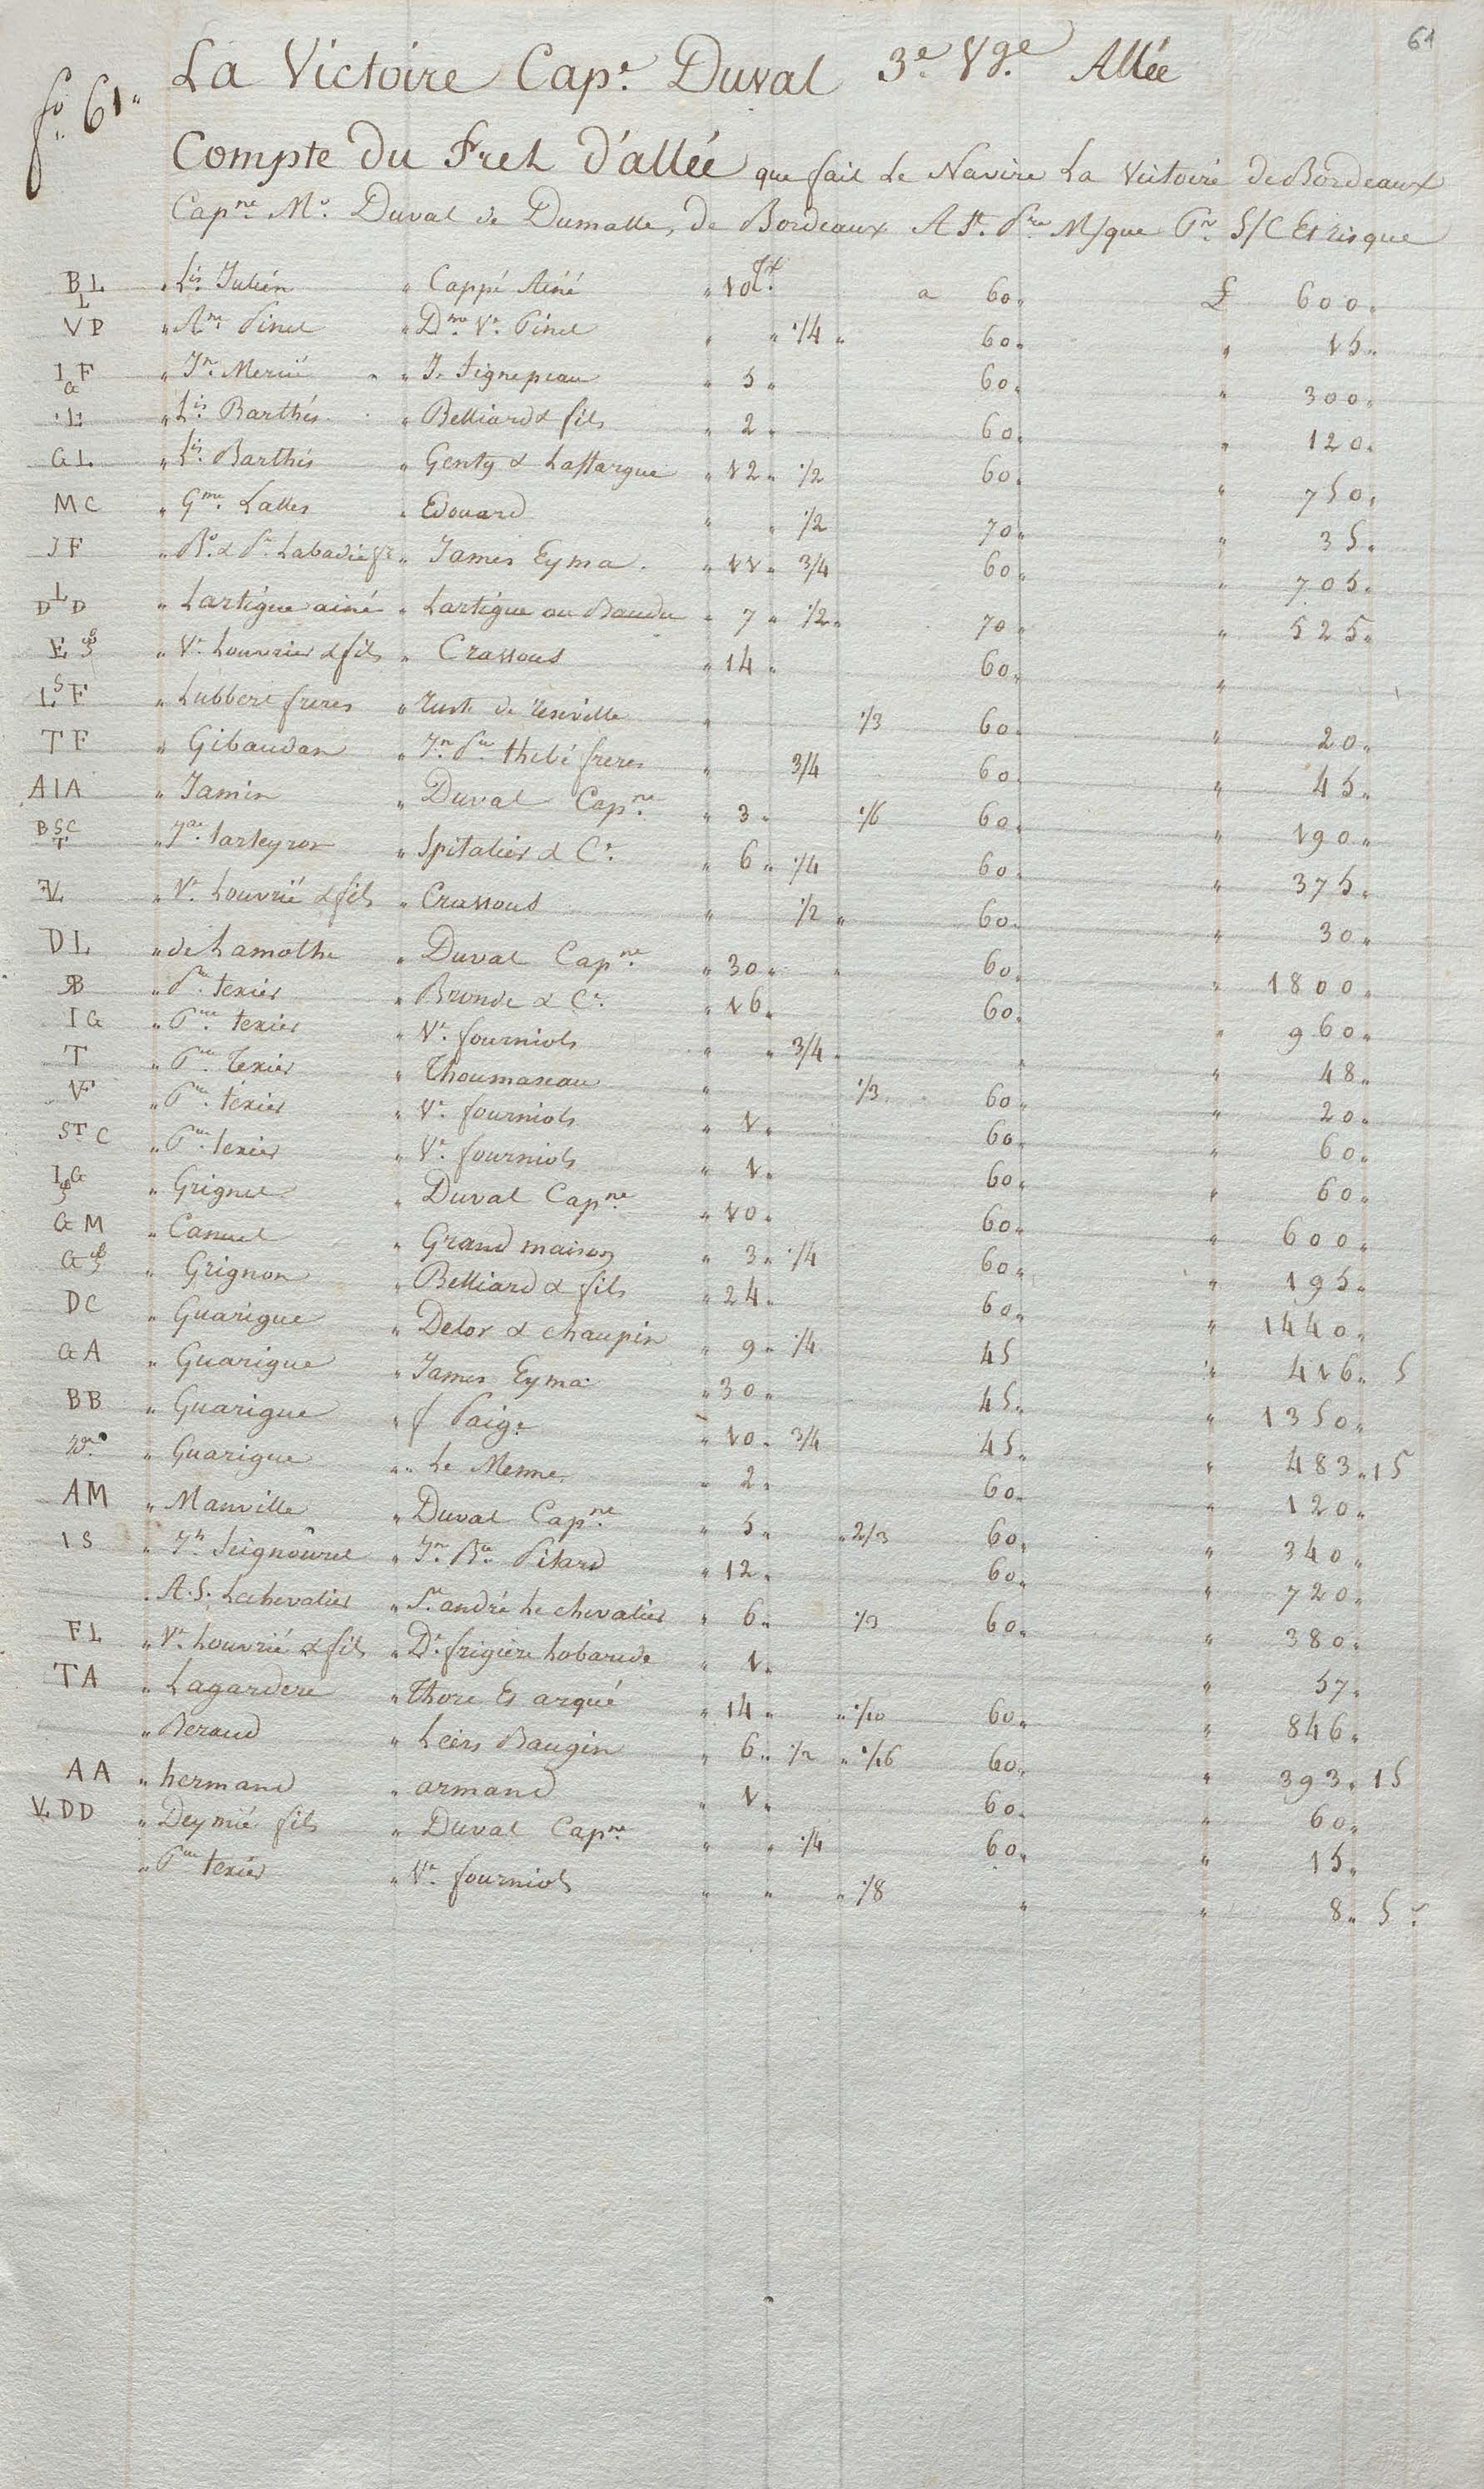 61
fo 61"
La Victoire Cape. Duval 3e. Vge. Allée
Compte du Fret d'allée que fait Le Navire La Victoire de Bordeaux
Capne. Mr. Duval de Dumalle, de Bordeaux A St. Pre. M/que Pr. S/C Et risque
BL L " Lis. Julién " Cappé Ainé " 10 Tx. a 60" £ 600"
VP " Ane. Pinel " Dme. Ve. Pinel " " 1/4 " 60" " 15"
IF G " Jn. Mercié " J. Tignepeau " 5" 60" " 300"
E " Lis. Barthés " Belliard & fils " 2" 60" " 120"
GL " Lis. Barthés " Genty & Laffargue " 12" 1/2 60" " 750"
MC " Gme. Lattes " Edouard " " 1/2 70" " 35"
JF " Bd. & Pre. Labadie " James Eyma " 11" 3/4 60" " 705"
DLD " Lartigue ainé " Lartigue ou Baudu " 7" 1/2" 70" " 525"
E " Ve. Louvrier & fils " Crassous " 14" 60" "
LSF " Lubbert freres " Ruste de Rezeville " 1/3 60" " 20"
TF " Gibaudan " Jn. Pre. thebé freres " 3/4 60" " 45"
AIA " Jamin " Duval Capne. " 3" 1/6 60" " 190"
BSC T " Jques. tarteyron " Spitalier & Ce. " 6" 1/4 60" " 375"
VL " Ve. Louvrié & fils " Crassous " 1/2 " 60" " 30"
DL " de Lamothe " Duval Capne. " 30" " 60" " 1800"
RB " Pre. texier " Bronde & Ce. " 16" 60" " 960"
IG " Pre. texier " Ve. fourniols " " 3/4" " " 48"
T " Pre. Texier " Thoumazeau " 1/3 60" " 20"
VF " Pre. téxier " Ve. fourniols " 1" 60" " 60"
ST C " Pre. texier " Ve. fourniols " 1" 60" " 60"
IG " Grignet " Duval Capne. " 10" 60" " 600"
GM " Canuel " Grand maison " 3" 1/4 60" " 195"
G " Grignon " Belliard & fils " 24" 60" " 1440"
DC " Guarigue " Delor & chaupin " 9" 1/4 45 " 416" 5
GA " Guarigue " James Eyma " 30" 45" " 1350"
BB " Guarigue " f Paige " 10" 3/4 45" " 483" 15
Do. " Guarigue " Le Mesme " 2" 60" " 120"
AM " Manville " Duval Capne. " 5" " 2/3 60" " 340"
IS " Jh. Seignouret " Jn. Bte. Pitard " 12" 60" " 720"
" A. S. Lechevalier " St. andré Le chevalier " 6" 1/3 60" " 380"
FL " Ve. Louvrié & fils " De. frigiere Lobarede " 1" " 57"
TA " Lagardere " Thore Et arqué " 14" " 1/10 60" " 846"
" Beraud " Leérs Baugin " 6" 1/2 " 1/16 60" " 393" 15
AA " hermand " armand " 1" 60" " 60"
VDD " Deymié fils " Duval Capne. " " 1/4 60" " 15"
" Pre. texier " Ve. fourniols " " " 1/8 " " 8" 5"